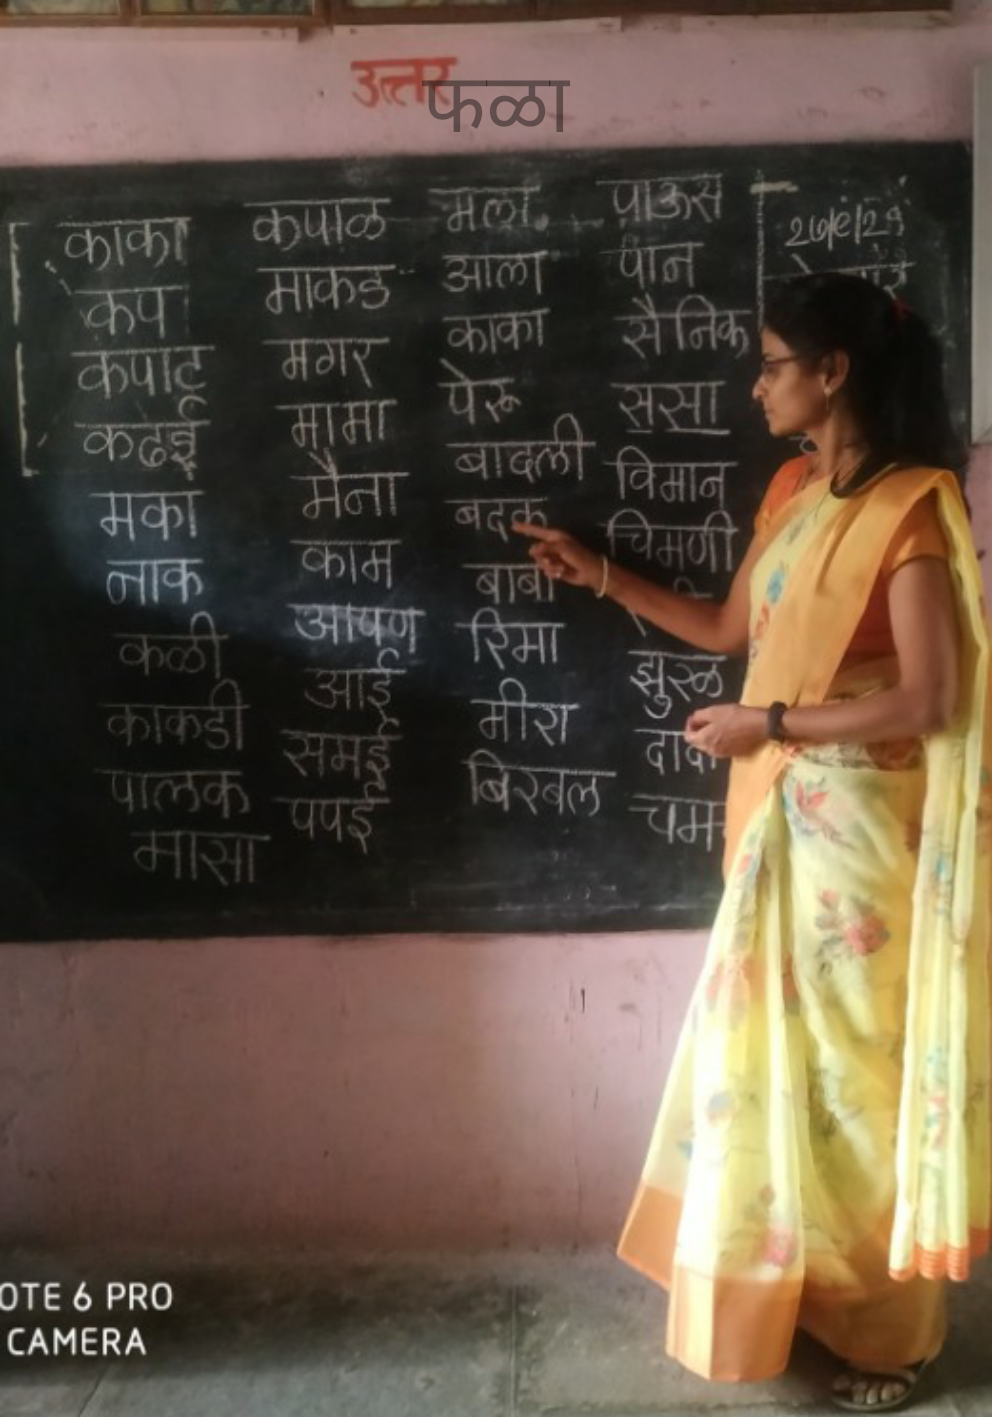 उत्तर
फळा
काका कपाळ मला पाऊस
कप माकड आला पान
कपाट मगर काका सैनिक
कढई मामा पेरू ससा
मका मैना बादली विमान
नाक काम बदक चिमणी
कळी आपण बाबा
काकडी आई रिमा झुरळ
पालक समई मीरा दादा
मासा पपई बिरबल
२७/९/२१
OTE 6 PRO
CAMERA